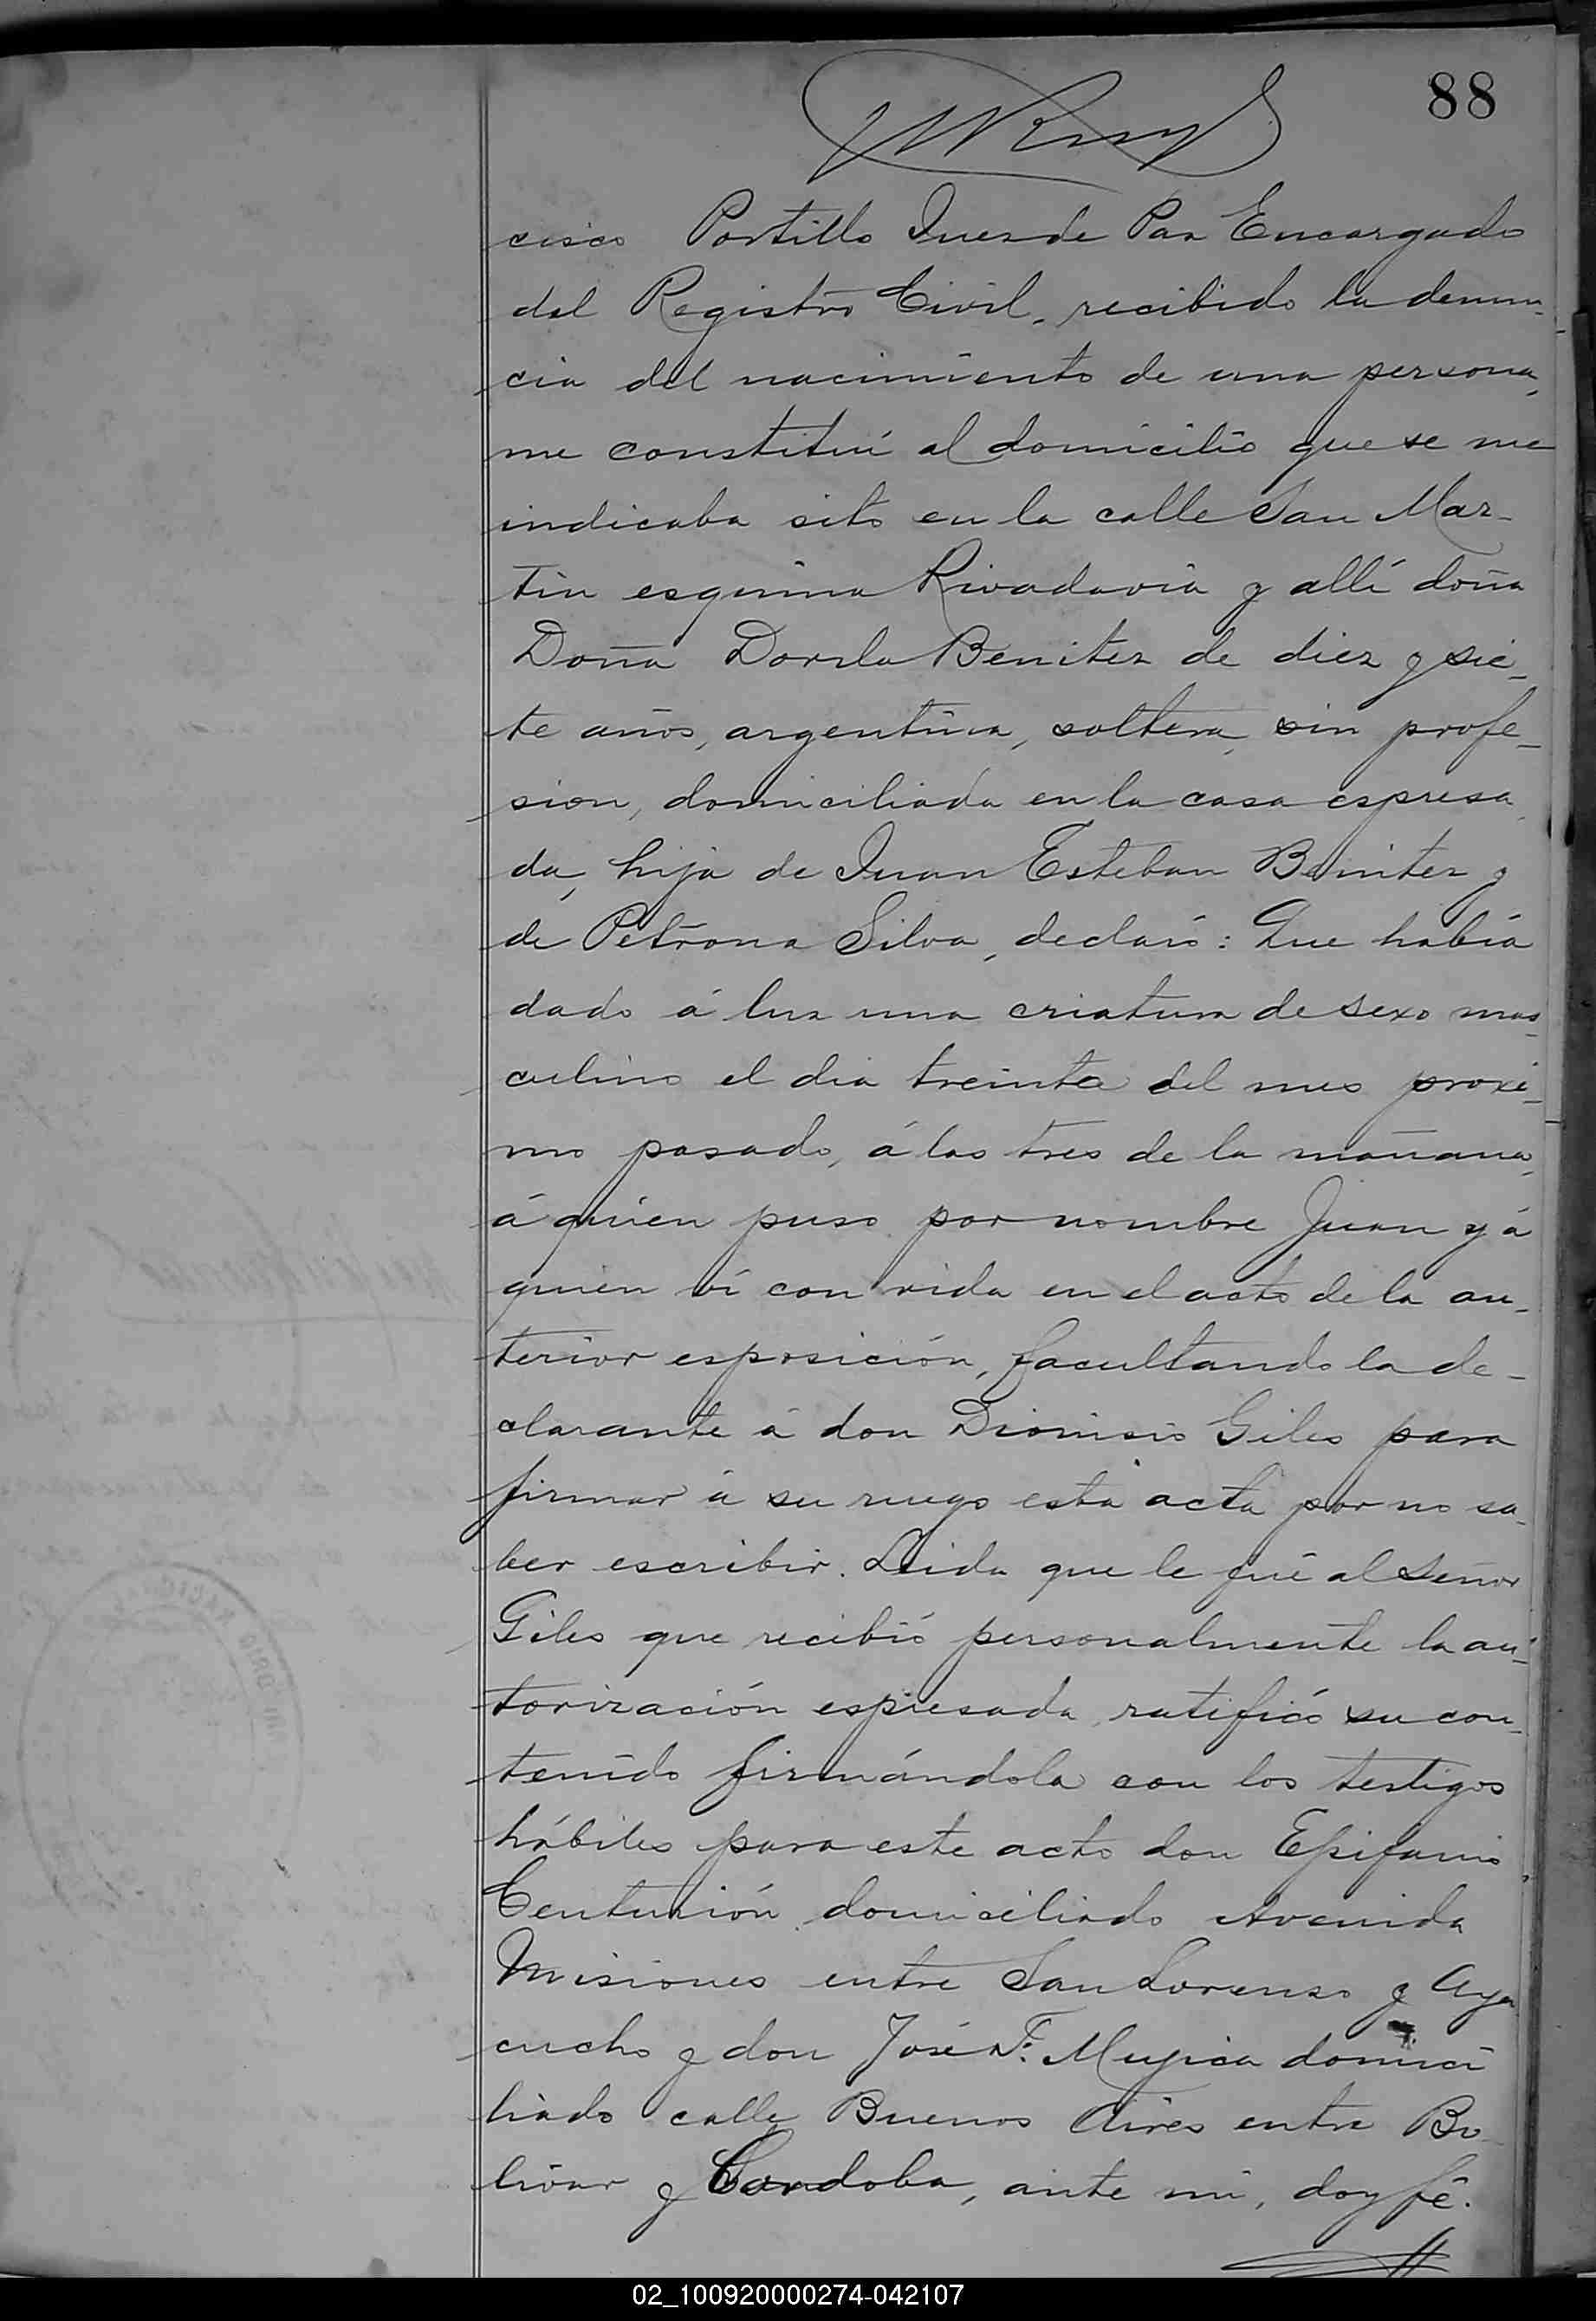 88
cisco Portillo Juez de Paz Encargado
del Registro Civil, recibido la denun-
cia del nacimiento de una persona,
me constituí al domicilio que se me
indicaba sito en la calle San Mar-
tin esquina Rivadavia y allí doña
Doña Dorila Benitez de diez y sie-
te años, argentina, soltera, sin profe-
sion, domiciliada en la casa espresa-
da, hija de Juan Esteban Benitez y
de Petrona Silva, declaró: Que había
dado á luz una criatura de sexo mas-
culino el dia treinta del mes proxi-
mo pasado, á las tres de la mañana,
á quien puso por nombre Juan y á
quien ví con vida en el acto de la an-
terior esposición, facultando la de-
clarante á don Dionisio Giles para
firmar á su ruego esta acta por no sa-
ber escribir. Leida que le fué al Señor
Giles que recibió personalmente la au-
torización espresada, ratificó su con-
tenido firmándola con los testigos
hábiles para este acto don Epifanio
Centurión domiciliado Avenida
Misiones entre San Lorenzo y Aya
cucho y don José F. Mujica domici
liado calle Buenos Aires entre Bo-
livar y Cordoba, ante mi, doy fé.
02_100920000274-042107